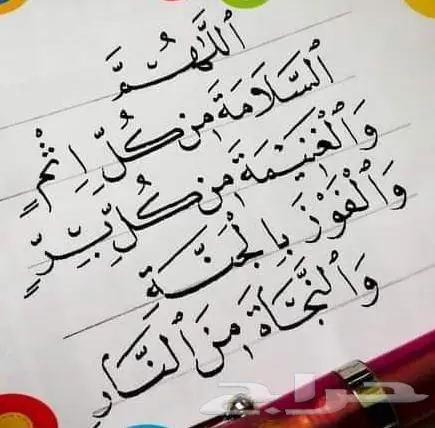 اللَّهُمَّ
السَّلَامَةَ مِن كُلِّ إِثْمٍ
وَالْغَنِيمَةَ مِن كُلِّ بِرٍّ
وَالْفَوْزَ بِالْجَنَّةِ
وَالنَّجَاةَ مِنَ النَّارِ
حراج